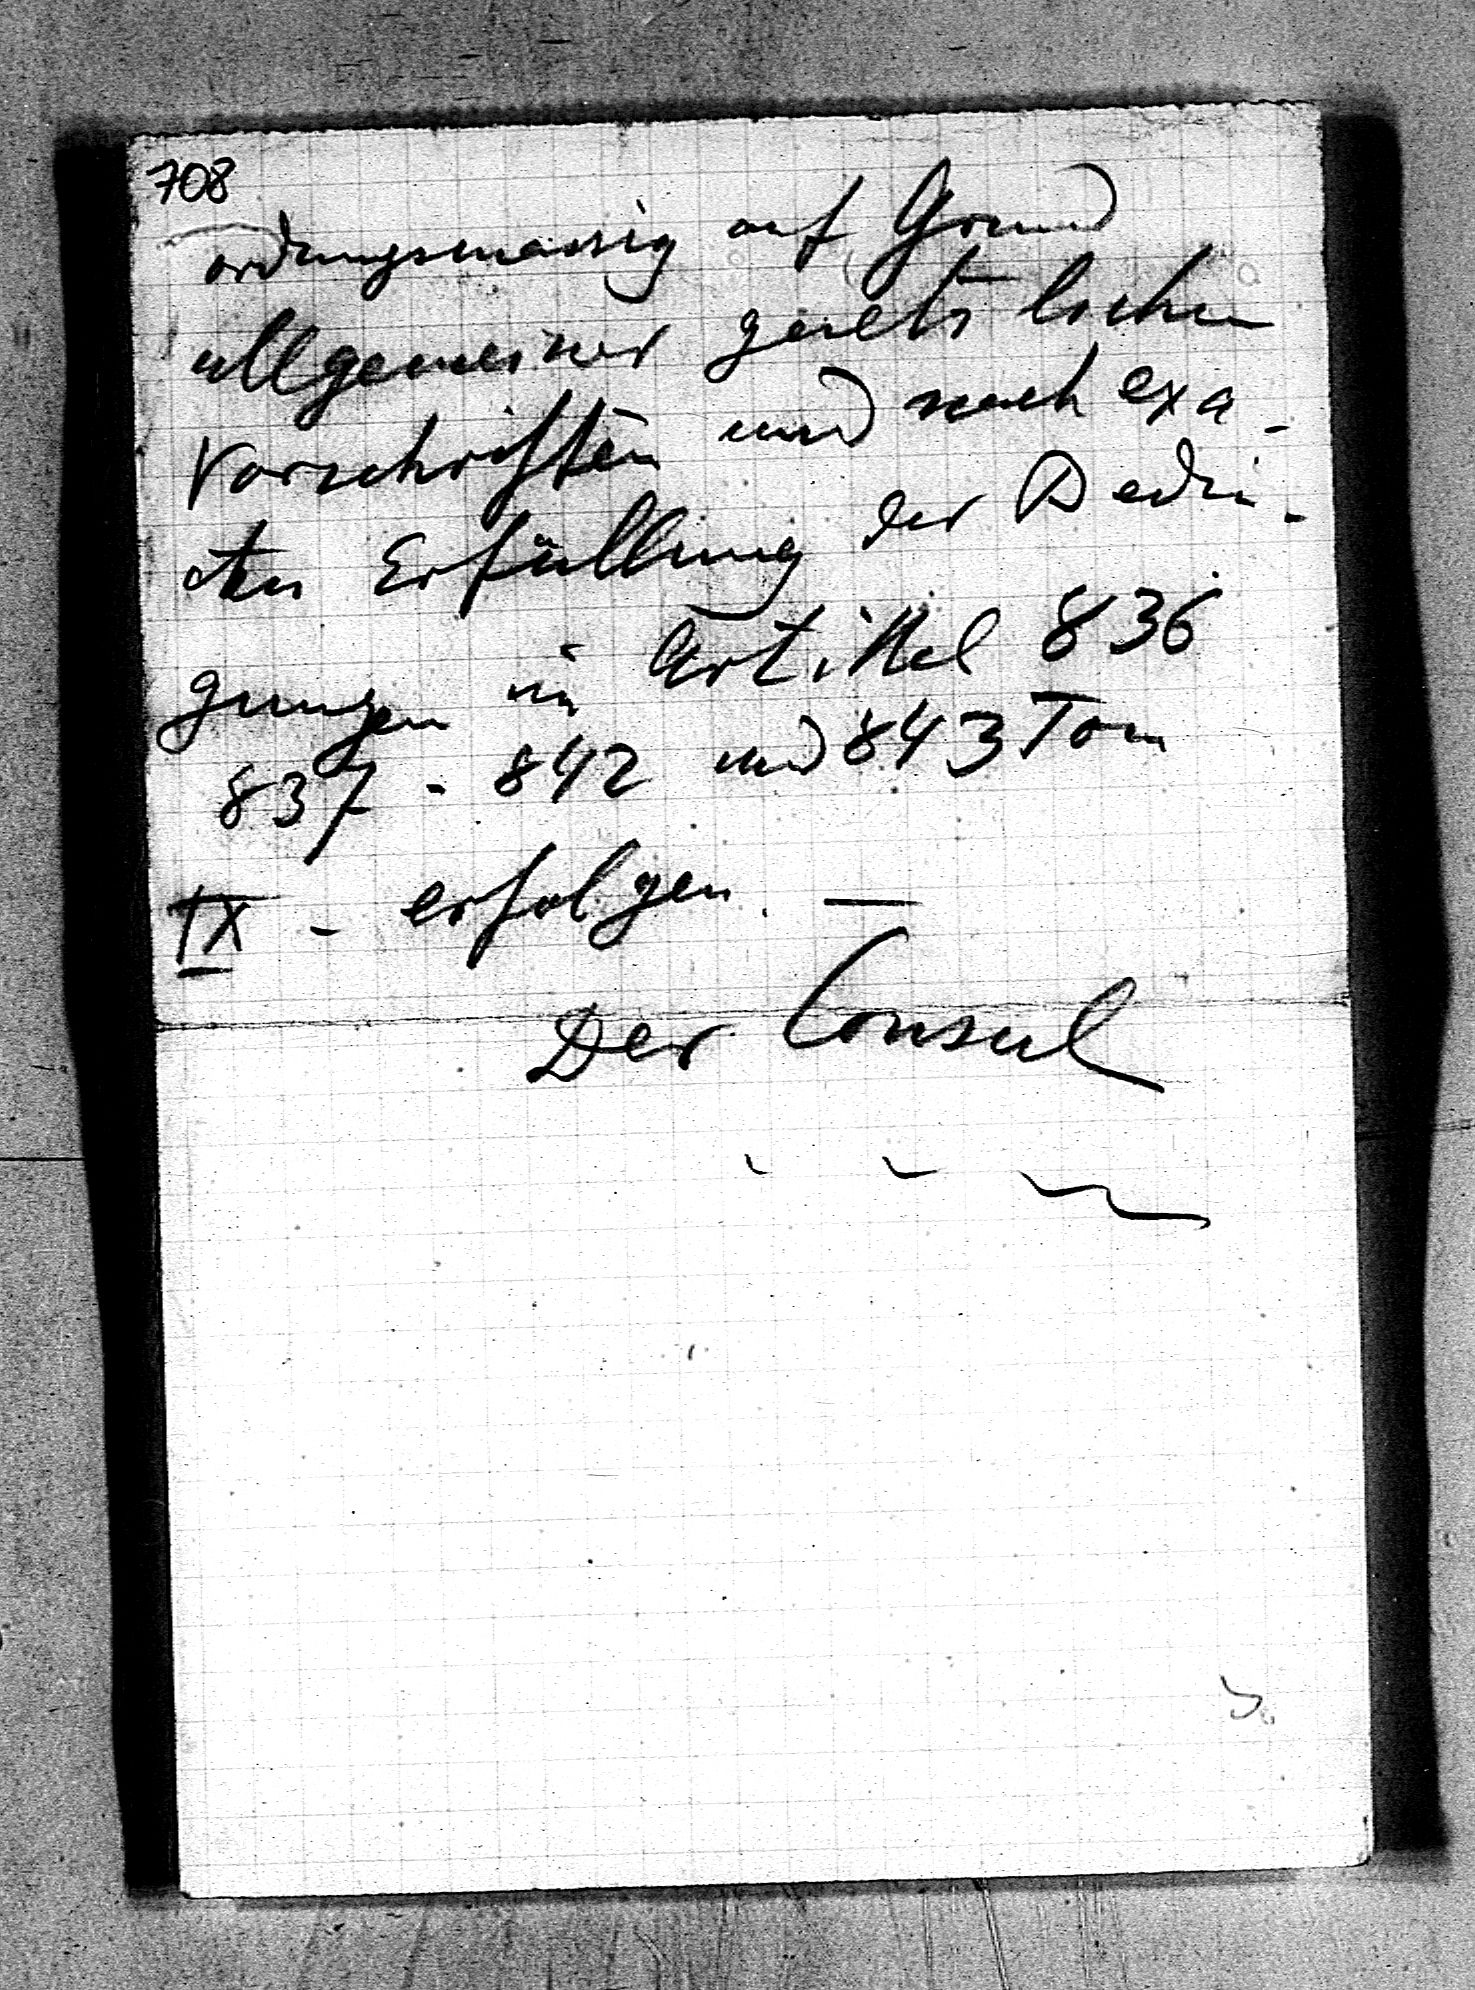 708
ordnungsmässig auf Grund
allgemeiner gesetzlichen
Vorschriften und nach exa-
cter Erfüllung der Bedin-
gungen in Artikel 836
837 - 842 und 843 Tom
IX - erfolgen. —
Der Consul